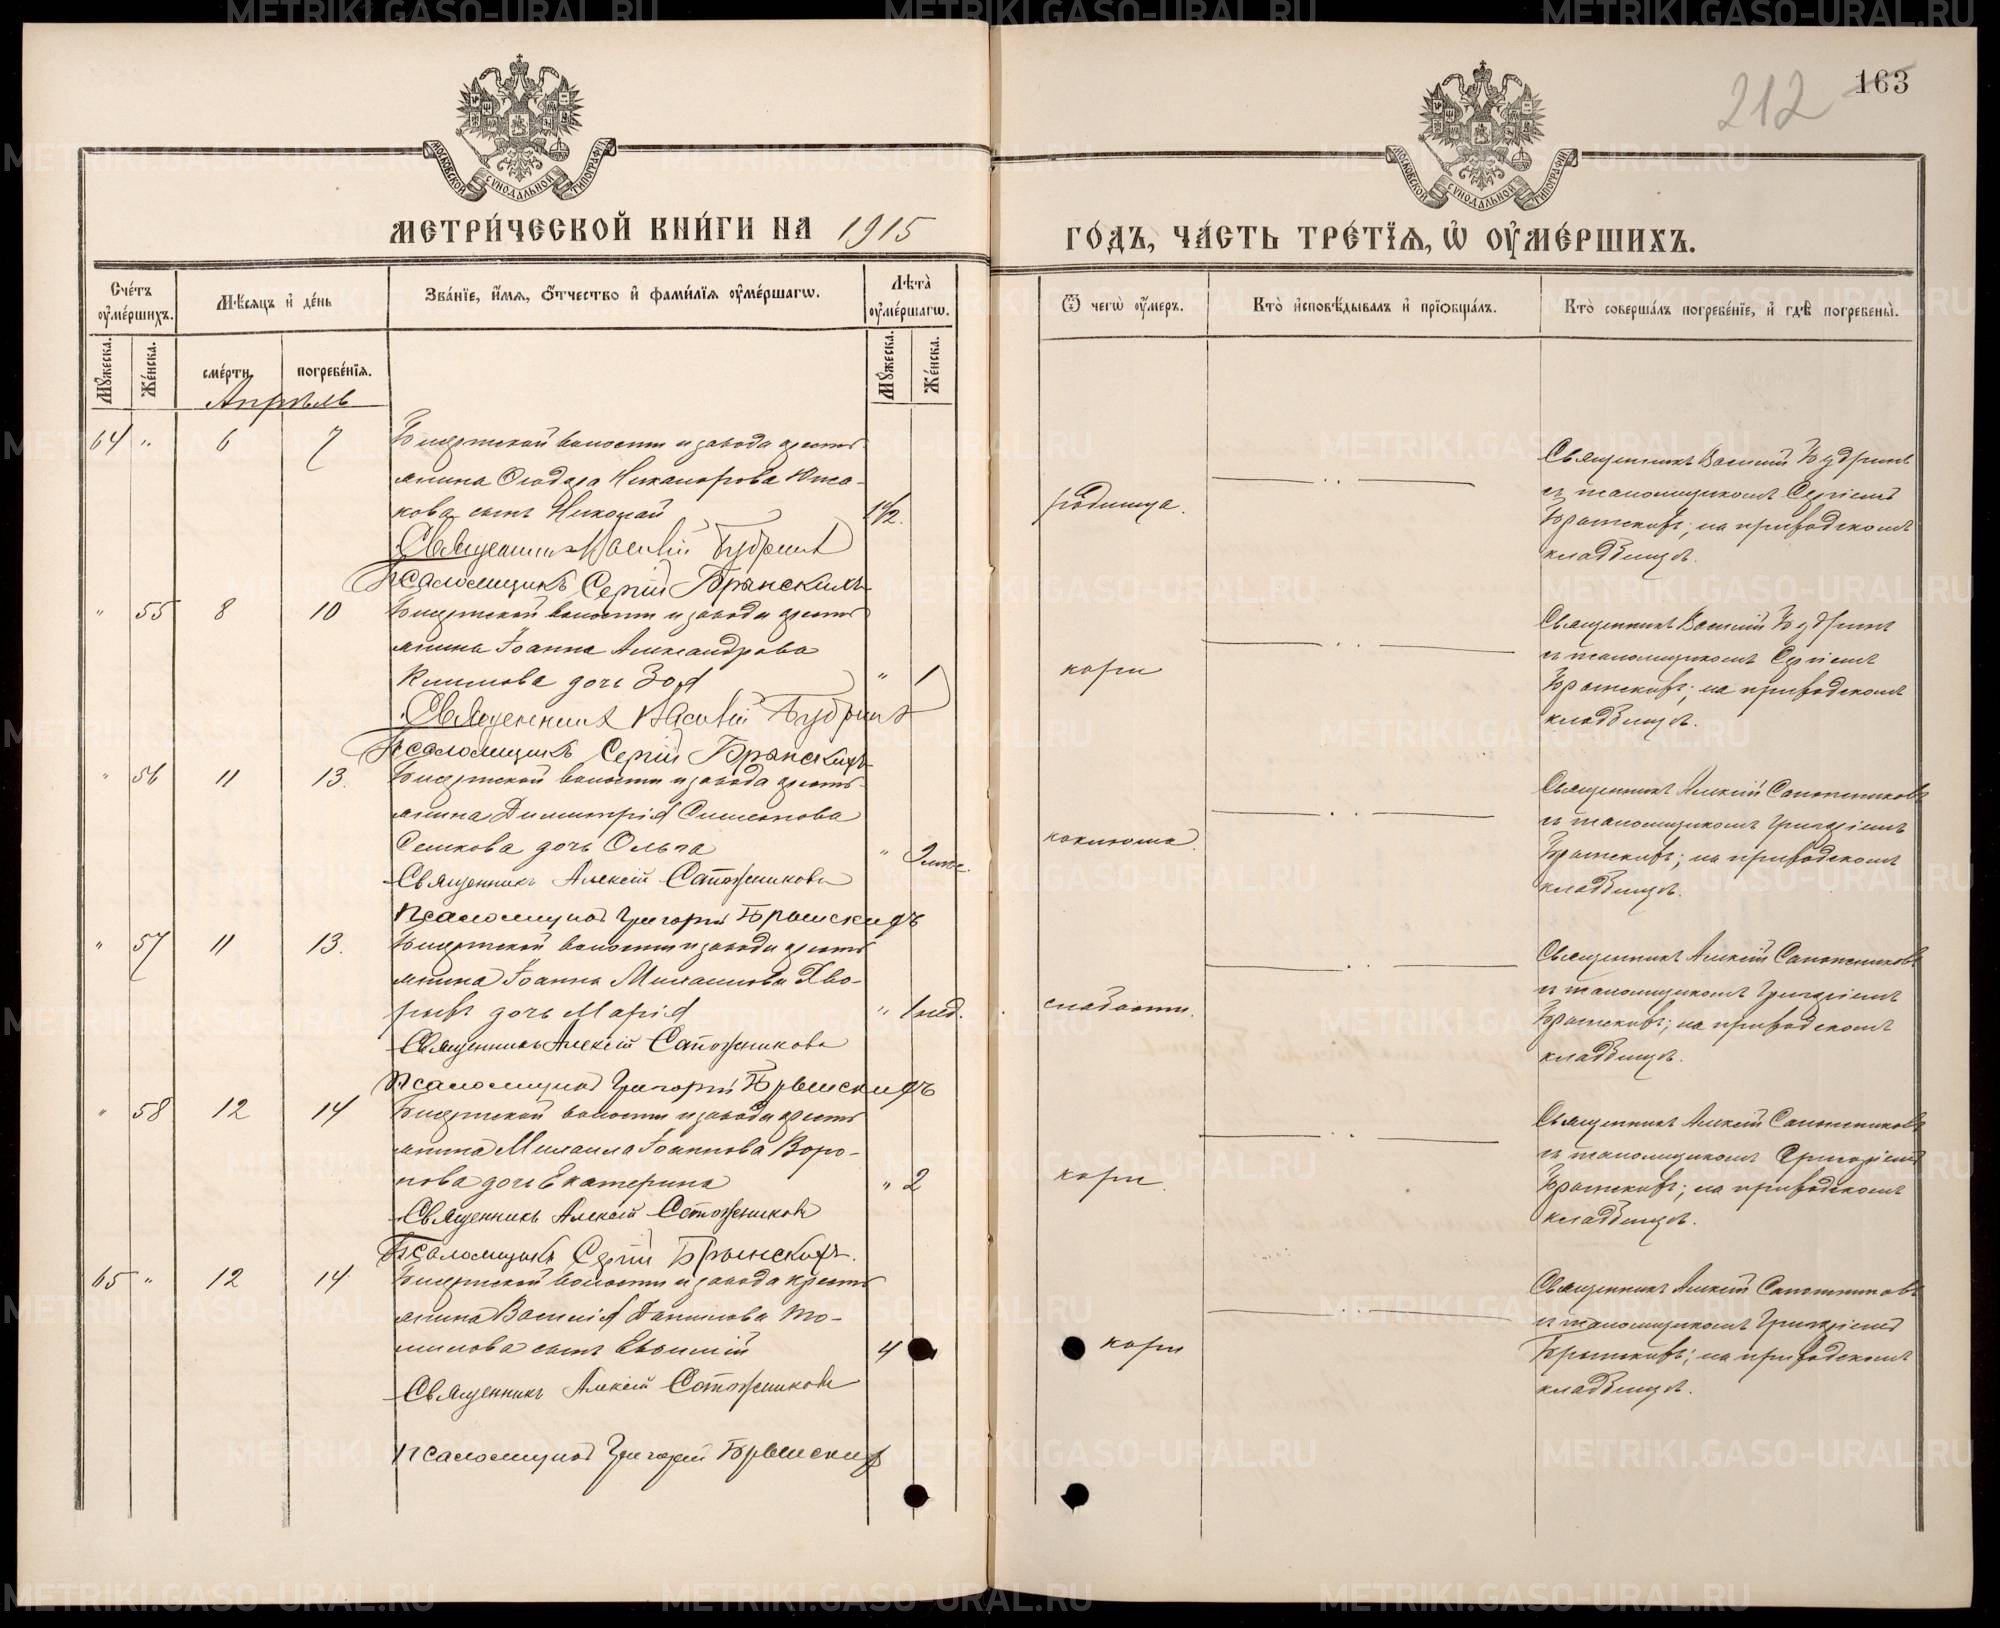 163
212
МОСКОВСКОЙ СУНОДАЛЬНОЙ ТИПОГРАФІИ
МОСКОВСКОЙ СУНОДАЛЬНОЙ ТИПОГРАФІИ
МЕТРИ́ЧЕСКОЙ КНИ́ГИ НА 1915
ГО́ДЪ, ЧА́СТЬ ТРЕ́ТІЯ, Ѡ ОУМЕ́РШИХЪ.
Сче́тъ оумершихъ.
Мѣсяцъ и де́нь
Зва́ніе, и́мя, о́тчество и фами́лія оуме́ршагѡ.
Лѣта̀ оуме́ршагѡ.
Ѿ чегѡ̀ оу́меръ.
Кто̀ исповѣ́дывалъ и пріѡбща́лъ.
Кто̀ соверша́лъ погребе́ніе, и гдѣ̀ погребены̀.
Му́жеска.
Же́нска.
сме́рти.
погребе́нія.
Му́жеска.
Же́нска.
Апрѣль
64 " 6 7
Бисертской волости и завода кресть-
янина Ѳеодора Никанорова
кова сынъ Николай 1½
родимца.
Священникъ Василій Будринъ
съ псаломщикомъ Сергіемъ
Брынскихъ; на приходскомъ
кладбищѣ.
Священникъ Василій Будринъ
Псаломщикъ Сергій Брынскихъ
" 55 8 10
Бисертской волости и завода кресть-
янина Іоанна Александрова
дочь Зоя " 1
кори
Священникъ Василій Будринъ
съ псаломщикомъ Сергіемъ
Брынскихъ; на приходскомъ
кладбищѣ.
Священникъ Василій Будринъ
Псаломщикъ Сергій Брынскихъ
" 56 11 13.
Бисертской волости и завода кресть-
янина Димитрія Симеонова
дочь Ольга "
коклюша.
Священникъ Алексій Сапожниковъ
съ псаломщикомъ Григоріемъ
Брынскихъ; на приходскомъ
кладбищѣ.
Священникъ Алексій Сапожниковъ
Псаломщикъ Григорій Брынскихъ
" 57 11 13.
Бисертской волости и завода кресть-
янина Іоанна Михаилова
дочь Марія " 1 нед.
слабости.
Священникъ Алексій Сапожниковъ
съ псаломщикомъ Григоріемъ
Брынскихъ; на приходскомъ
кладбищѣ.
Священникъ Алексій Сапожниковъ
Псаломщикъ Григорій Брынскихъ
" 58 12 14
Бисертской волости и завода кресть-
янина Михаила Іоаннова Воро-
нова дочь Екатерина " 2
кори.
Священникъ Алексій Сапожниковъ
съ псаломщикомъ Григоріемъ
Брынскихъ; на приходскомъ
кладбищѣ.
Священникъ Алексій Сапожниковъ
Псаломщикъ Сергій Брынскихъ.
65 " 12 14
Бисертской волости и завода кресть-
янина Василія Данилова То-
милова сынъ 4
кори
Священникъ Алексій Сапожниковъ
съ псаломщикомъ Григоріемъ
Брынскихъ; на приходскомъ
кладбищѣ.
Священникъ Алексій Сапожниковъ
Псаломщикъ Григорій Брынскихъ
METRIKI.GASO-URAL.RU